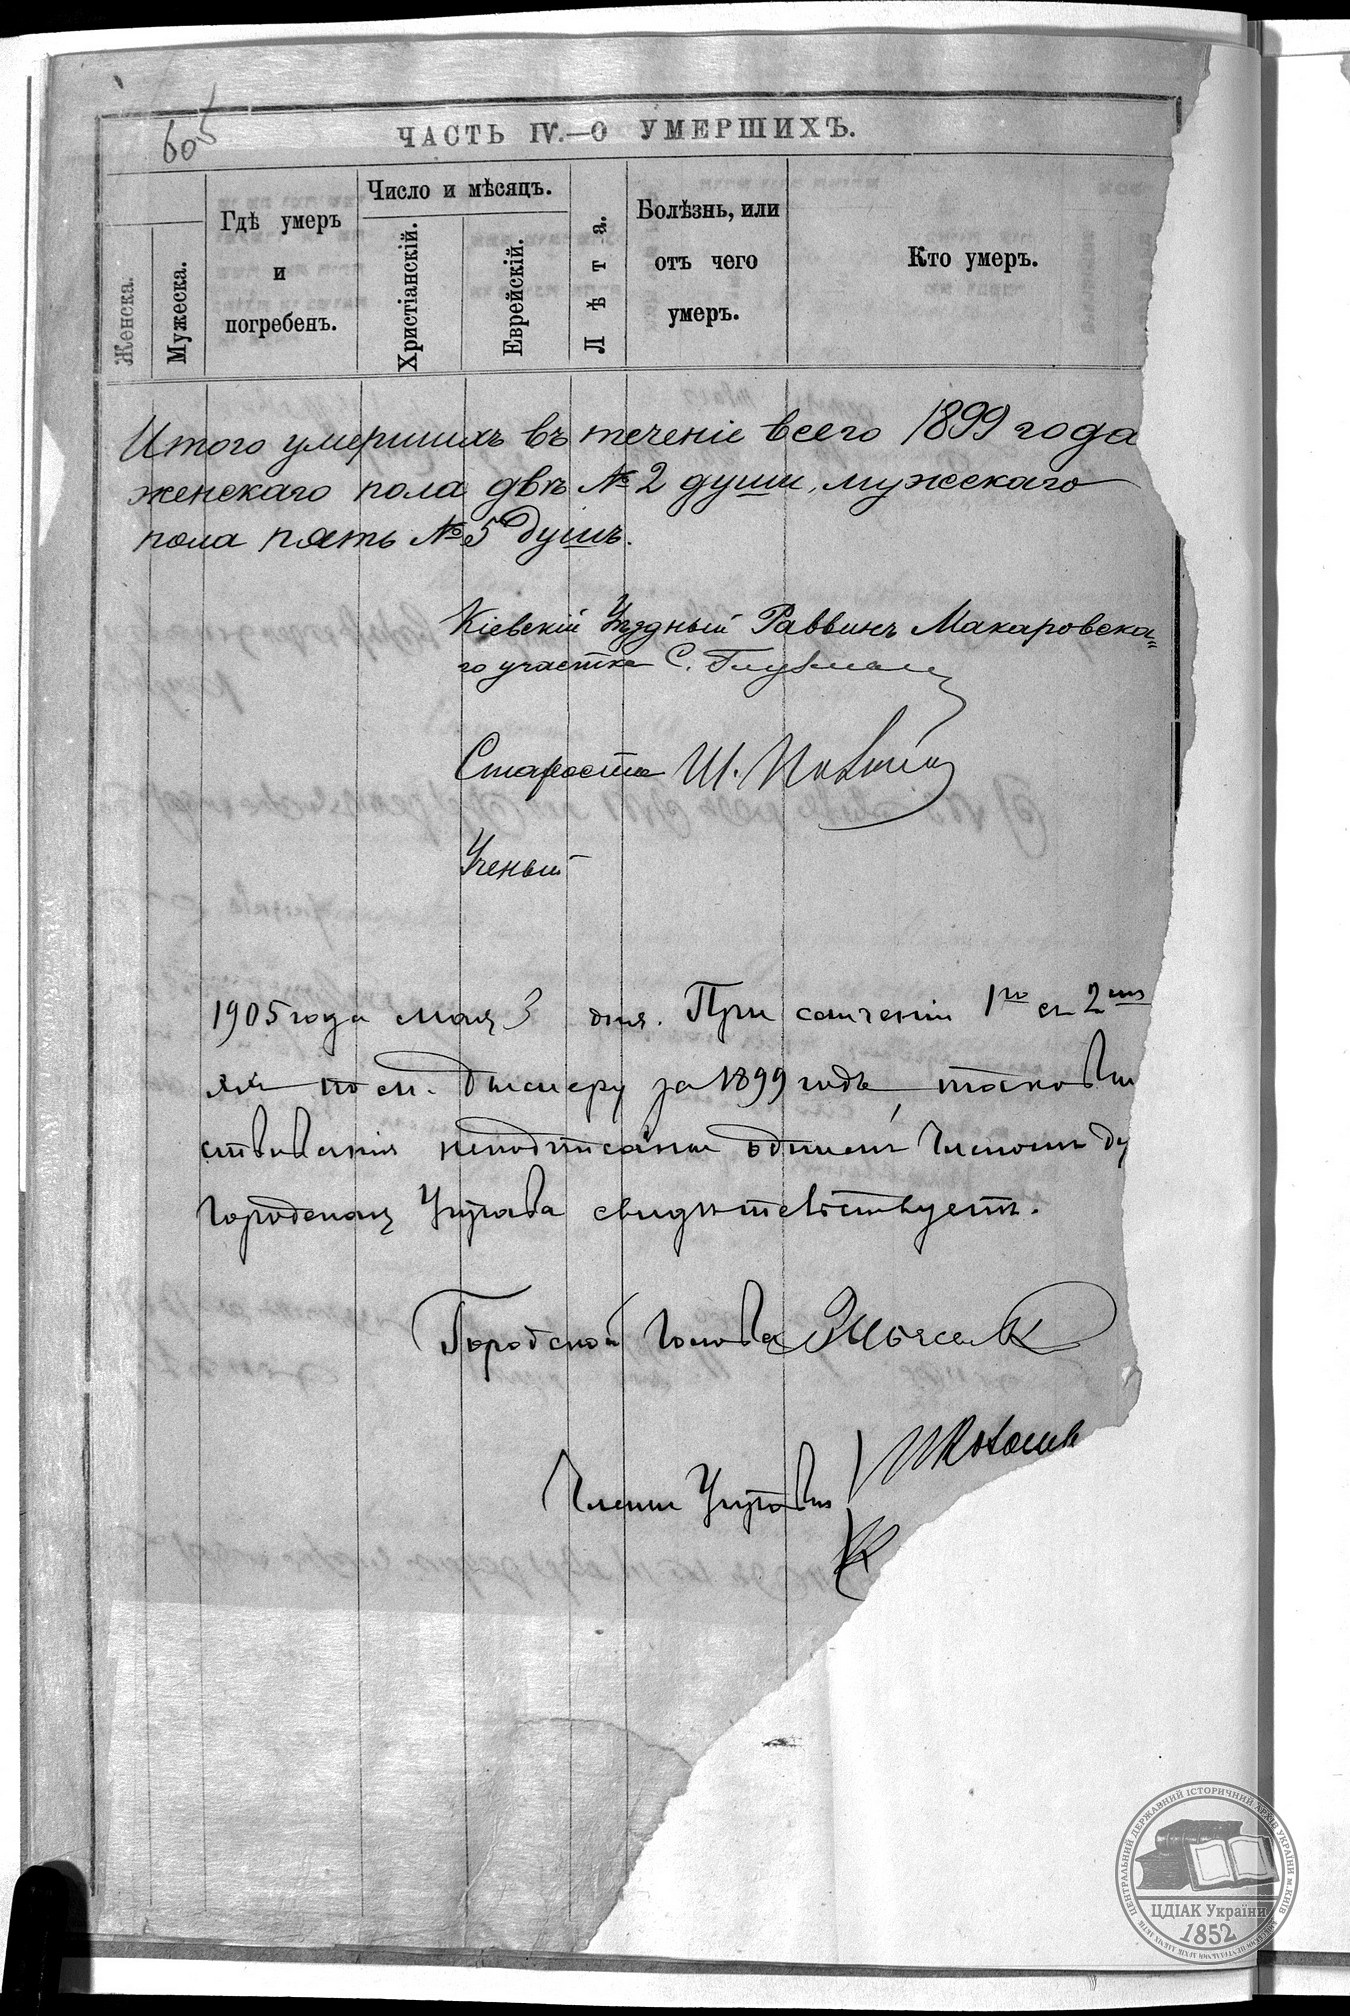 605
ЧАСТЬ IV.—О УМЕРШИХЪ.
Женска.
Мужеска.
Гдѣ умеръ
и
погребенъ.
Число и мѣсяцъ.
Христіанскій.
Еврейскій.
Лѣта.
Болѣзнь, или
отъ чего
умеръ.
Кто умеръ.
Итого умершихъ въ теченіе всего 1899 года
женскаго пола двѣ № 2 души, мужскаго
пола пять № 5 душъ.
Кіевскій Уѣздный Раввинъ Макаровска=
го участка С.
Староста Ш.
Ученый
1905 года мая 3 дня. При сличеніи 1го съ 2мъ
за 1899 годъ,
неподписаны однимъ Членомъ
Городская Управа свидѣтельствуетъ.
Городской Голова
Члены Управы
ЦЕНТРАЛЬНИЙ ДЕРЖАВНИЙ ІСТОРИЧНИЙ АРХІВ УКРАЇНИ м.КИЇВ
ЦДІАК України
1852